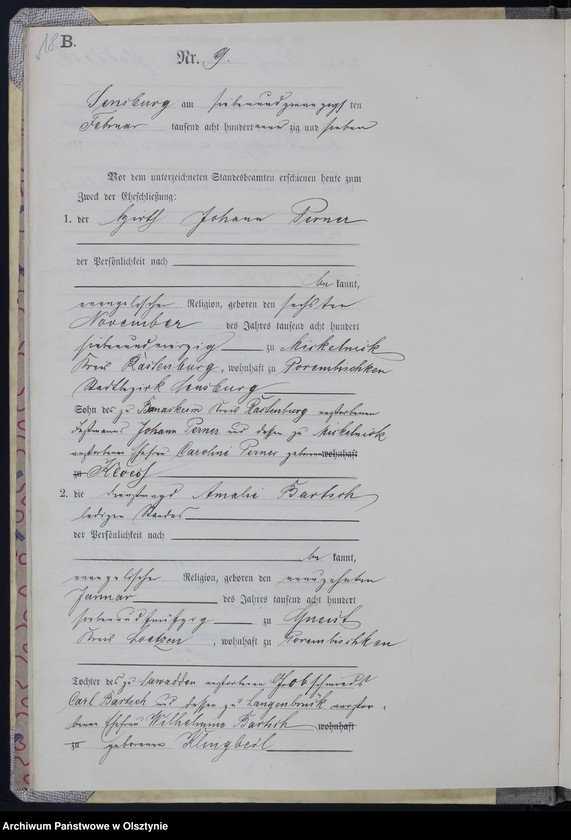 18.
B.
Nr. 9.
Sensburg am siebenundzwanzigsten
Februar tausend acht hundert neunzig und sieben
Vor dem unterzeichneten Standesbeamten erschienen heute zum
Zweck der Eheschließung:
1. der Wirth Johann Perner
der Persönlichkeit nach
be kannt,
evangelischer Religion, geboren den sechsten
November des Jahres tausend acht hundert
siebenundvierzig zu Mickelnick
Kreis Rastenburg, wohnhaft zu Porembischken
Stadtbezirk Sensburg
Sohn des zu Kreis Rastenburg verstorbenen
Johann Perner und dessen zu Mickelnick
verstorbenen Ehefrau Caroline Perner geborene wohnhaft
zu
2. die Dienstmagd Amalie Bartsch
ledigen Standes
der Persönlichkeit nach
be kannt,
evangelische Religion, geboren den neunzehnten
Januar des Jahres tausend acht hundert
siebenundfünfzig zu Gneist
Kreis Loetzen, wohnhaft zu Porembischken
Tochter des zu verstorbenen
Carl Bartsch und dessen zu Langenbrück verstor-
benen Ehefrau Wilhelmine Bartsch wohnhaft
zu geborenen Klingbeil
Archiwum Państwowe w Olsztynie